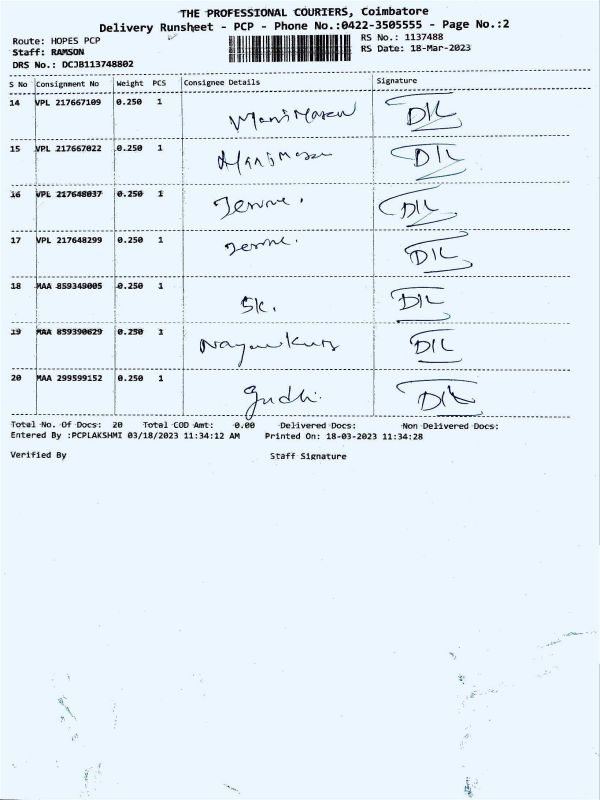 THE PROFESSIONAL COURIERS, Coimbatore
Delivery Runsheet - PCP - Phone No.:0422-3505555 - Page No.:2
Route: HOPES PCP
RS No.: 1137488
Staff: RAMSON
RS Date: 18-Mar-2023
DRS No.: DCJB113748802
S No Consignment No Weight PCS Consignee Details Signature
14 VPL 217667109 0.250 1
15 VPL 217667022 0.250 1
16 VPL 217648037 0.250 1
17 VPL 217648299 0.250 1
18 MAA 859349005 0.250 1 SK.
19 MAA 859390629 0.250 1
20 MAA 299599152 0.250 1
Total No. Of Docs: 20 Total COD Amt: 0.00 Delivered Docs: Non Delivered Docs:
Entered By :PCPLAKSHMI 03/18/2023 11:34:12 AM Printed On: 18-03-2023 11:34:28
Verified By Staff Signature